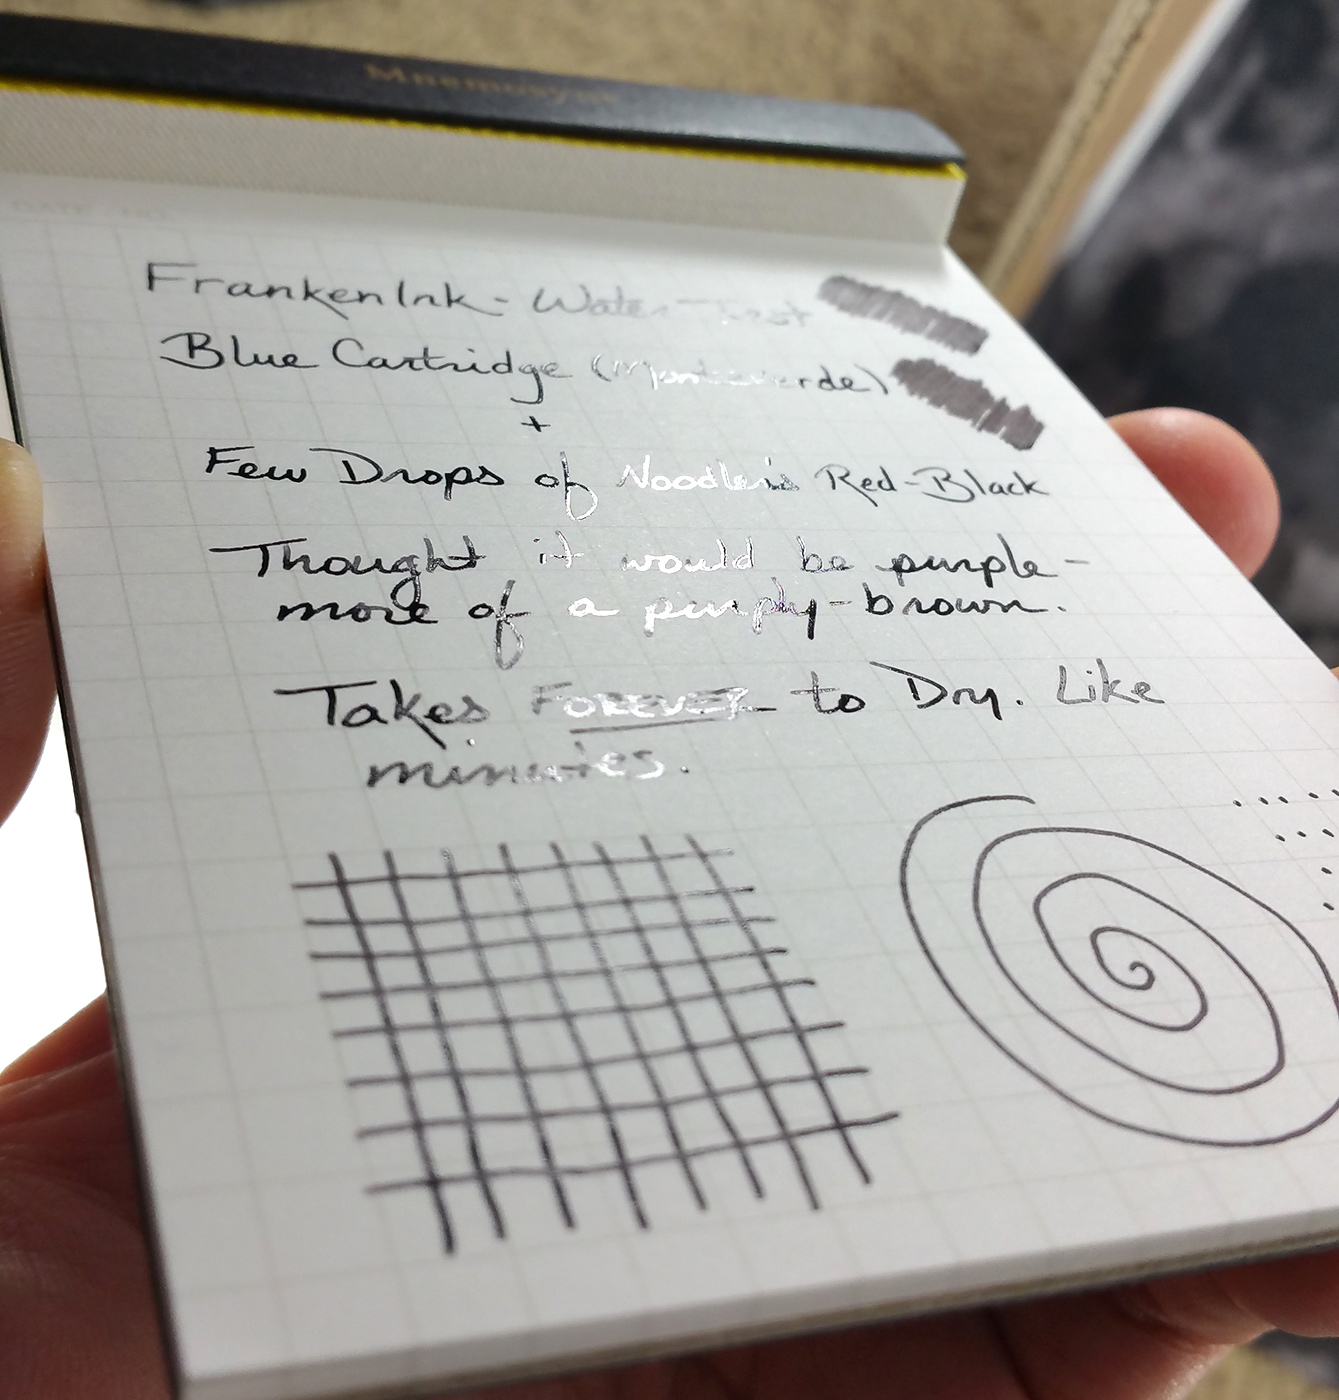 Mnemosyne
DATE NO.
FrankenInk - Water Test
Blue Cartridge (Monteverde)
+
Few Drops of Noodler's Red-Black
Thought it would be purple-
more of a purply-brown.
Takes FOREVER to Dry. Like
minutes.